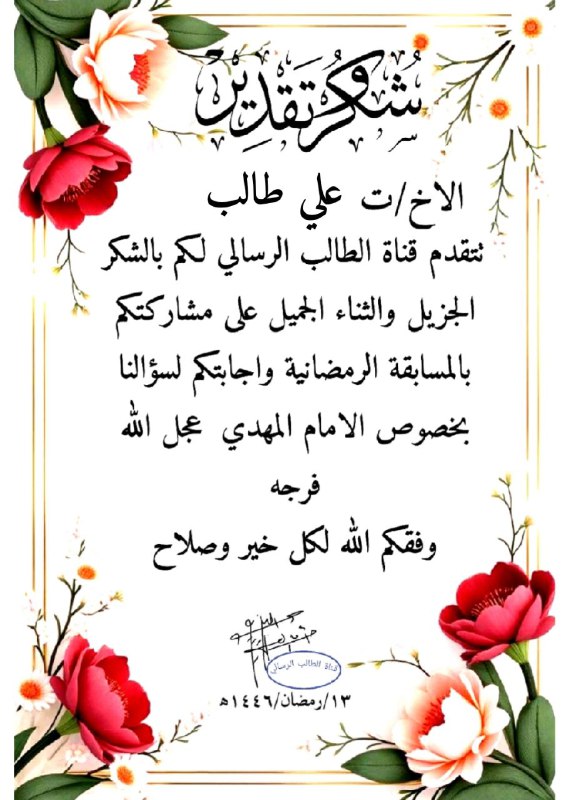 شكر وتقدير
الاخ/ت علي طالب
تتقدم قناة الطالب الرسالي لكم بالشكر
الجزيل والثناء الجميل على مشاركتكم
بالمسابقة الرمضانية واجابتكم لسؤالنا
بخصوص الامام المهدي عجل الله
فرجه
وفقكم الله لكل خير وصلاح
قناة الطالب الرسالي
١٣/رمضان/١٤٤٦ه